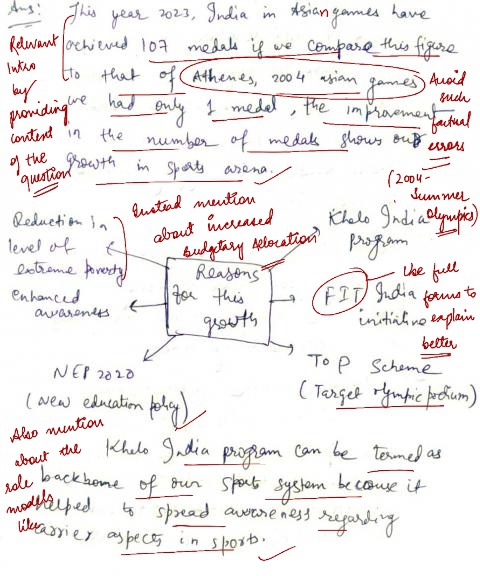 Ans:
This year 2023, India in Asian games have
achieved 107 medals if we compare this figure
to that of Athenes, 2004 asian games
we had only 1 medal, the improvement
in the number of medals shows our
growth in sports arena.
Relevant
Intro
by
providing
context
of the
question
Avoid
such
factual
errors
(2004-
Summer
Olympics)
Reduction in
level of
extreme poverty
Instead mention
about increased
budgetary allocation
Khelo India
program
enhanced
awareness
Reasons
for this
growth
FIT India
initiative
Use full
forms to
explain
better
NEP 2020
(New education policy)
TOP Scheme
(Target olympic podium)
Also mention
about the
role
models
like
Khelo India program can be termed as
backbone of our sports system because it
helped to spread awareness regarding
carrier aspects in sports.